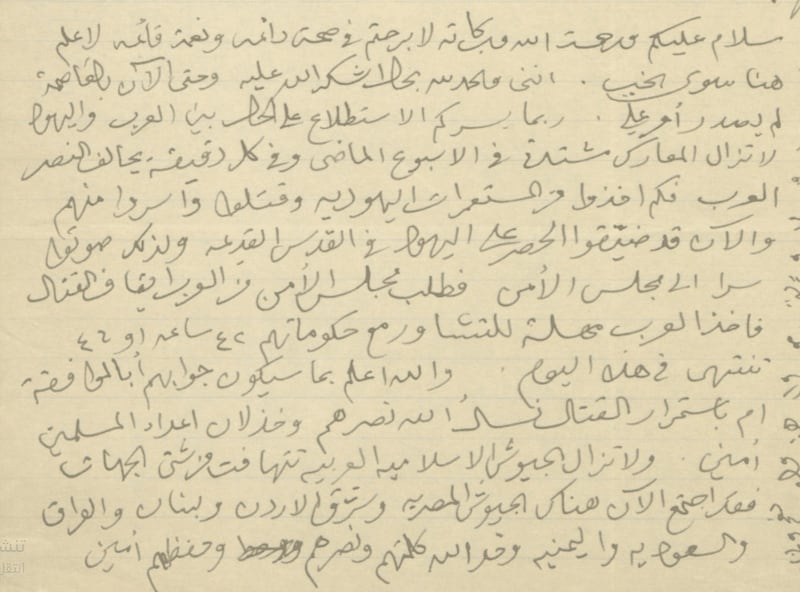 سلام عليكم ورحمت الله وبركاته لا برحتم في صحة دائمه ونعمة قائمه لا علم
هنا سوى الخير . انني ولله الحمد بحال اشكر الله عليه وحتى الآن بالعاصمة
لم يصدر أمر علي . ربما يسركم الاستطلاع على الحال بين العرب واليهود
لا تزال المعارك مشتدة في الاسبوع الماضي وفي كل دقيقة يحالف النصر
العرب فكم اخذوا من المستعمرات اليهوديه وقتلوا وأسروا منهم
والآن قد ضيّقوا الحصر على اليهود في القدس القديمه ولذلك صوتوا
سرا الى مجلس الأمن فطلب مجلس الأمن من العرب ايقاف القتال
فاخذ العرب مهلة للتشاور مع حكوماتهم ٤٢ ساعه او ٤٦
تنتهى في هذا اليوم . والله اعلم بما سيكون جوابهم أبالموافقة
ام باستمرار القتال نسأل الله نصرهم وخذلان اعداء المسلمين
أمين . ولا تزال الجيوش الاسلاميه العربيه تتهافت من شتى الجهات
فقد اجتمع الآن هناك الجيوش المصريه وشرق الاردن ولبنان والعراق
والسعوديه واليمنيه وحد الله كلمتهم ونصرهم وحفظهم أمين